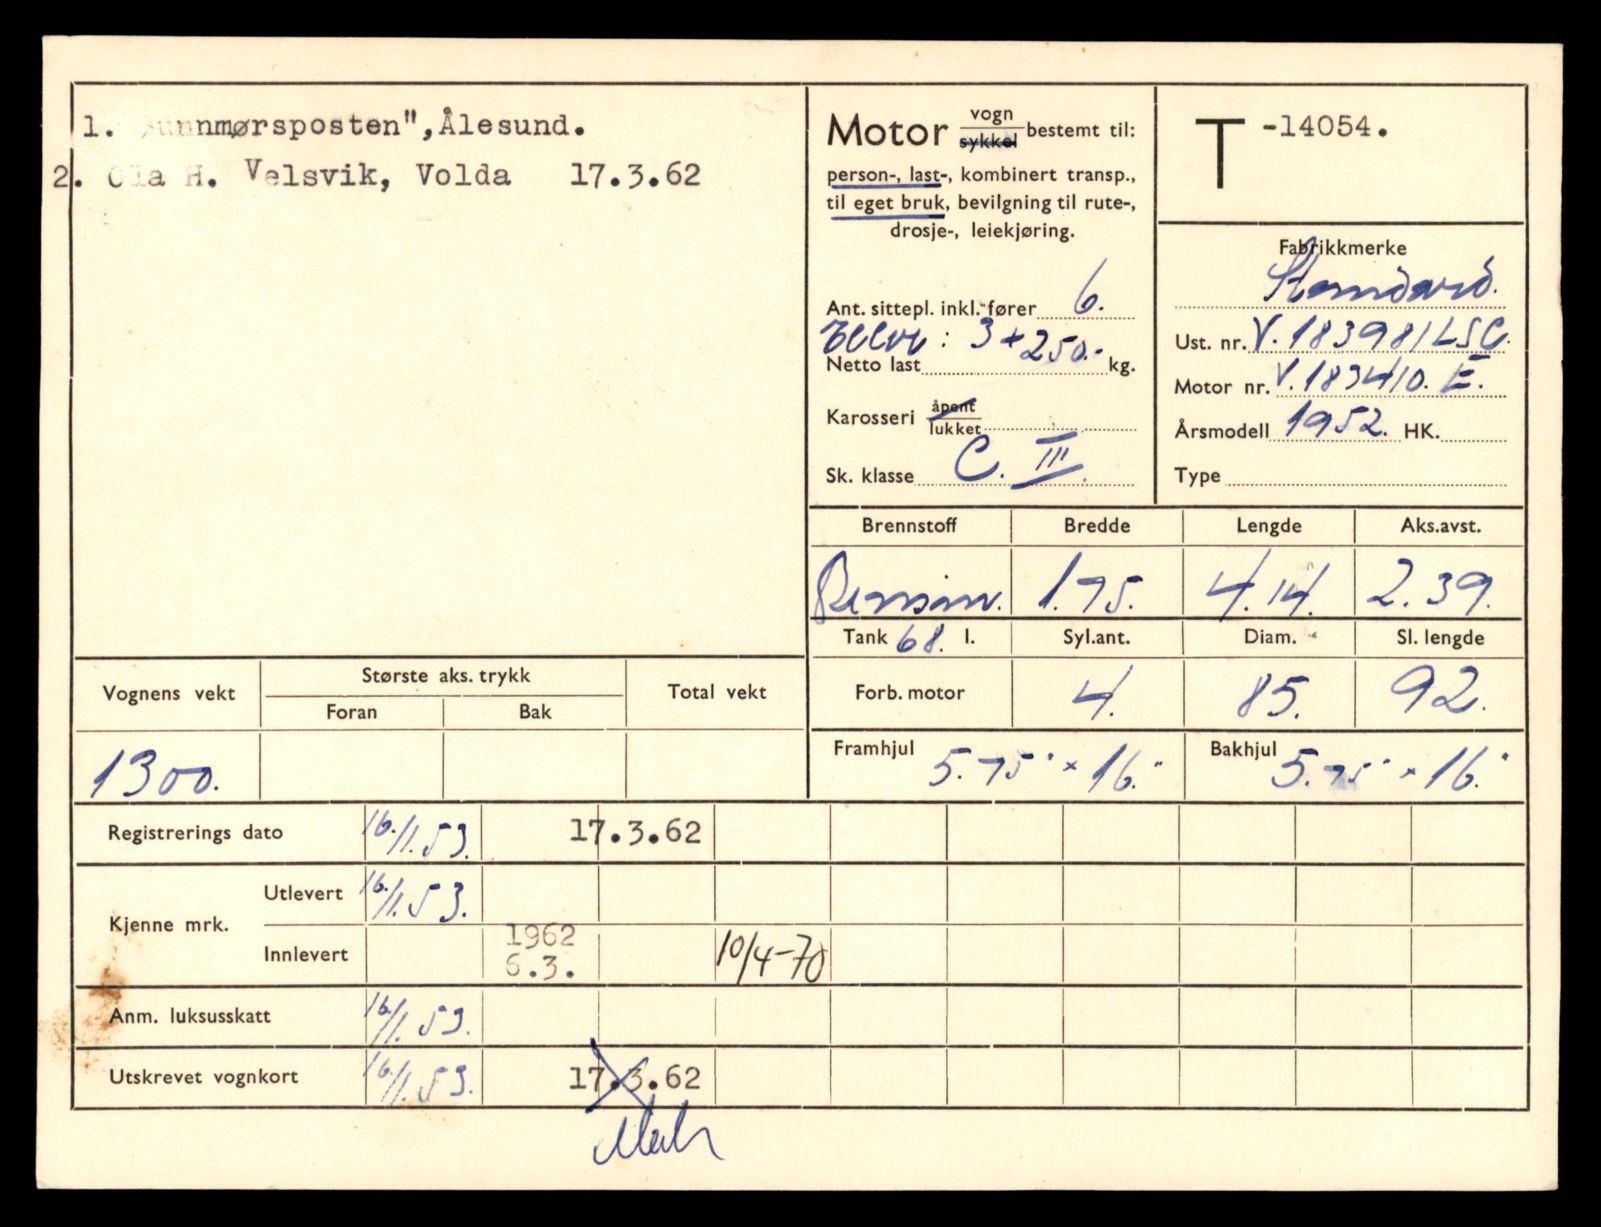 1. "Sunnmørsposten", Ålesund.
2. Ola H. Velsvik, Volda 17.3.62
Motor vogn
sykkel bestemt til:
person-, last-, kombinert transp.,
til eget bruk, bevilgning til rute-,
drosje-, leiekjøring.
Ant. sittepl. inkl. fører 6.
: 3 + 250.-
Netto last kg.
Karosseri åpent
lukket
Sk. klasse C. III.
T -14054.
Fabrikkmerke
Standard.
Ust. nr. V. 183981 LSC.
Motor nr. V. 183410. E.
Årsmodell 1952. HK.
Type
Brennstoff Bredde Lengde Aks.avst.
Bensin. 1.75. 4.14. 2.39.
Tank 68. l. Syl.ant. Diam. Sl. lengde
Forb. motor 4. 85. 92.
Framhjul 5.75" x 16." Bakhjul 5.75" x 16."
Vognens vekt Største aks. trykk Total vekt
Foran Bak
1300.
Registrerings dato 16./11.53. 17.3.62
Kjenne mrk.
Utlevert 16./11.53.
Innlevert 1962
6.3. 10/4-70
Anm. luksusskatt 16./11.53.
Utskrevet vognkort 16./11.53. 17.3.62